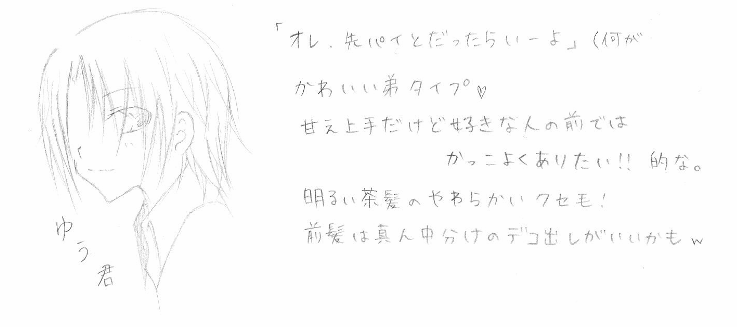 「オレ、先パイとだったらいーよ」(何が
かわいい弟タイプ♥
甘え上手だけど好きな人の前では
かっこよくありたい!!的な。
明るい茶髪のやわらかいクセ毛!
前髪は真ん中分けのデコ出しがいいかもw
ゆう君